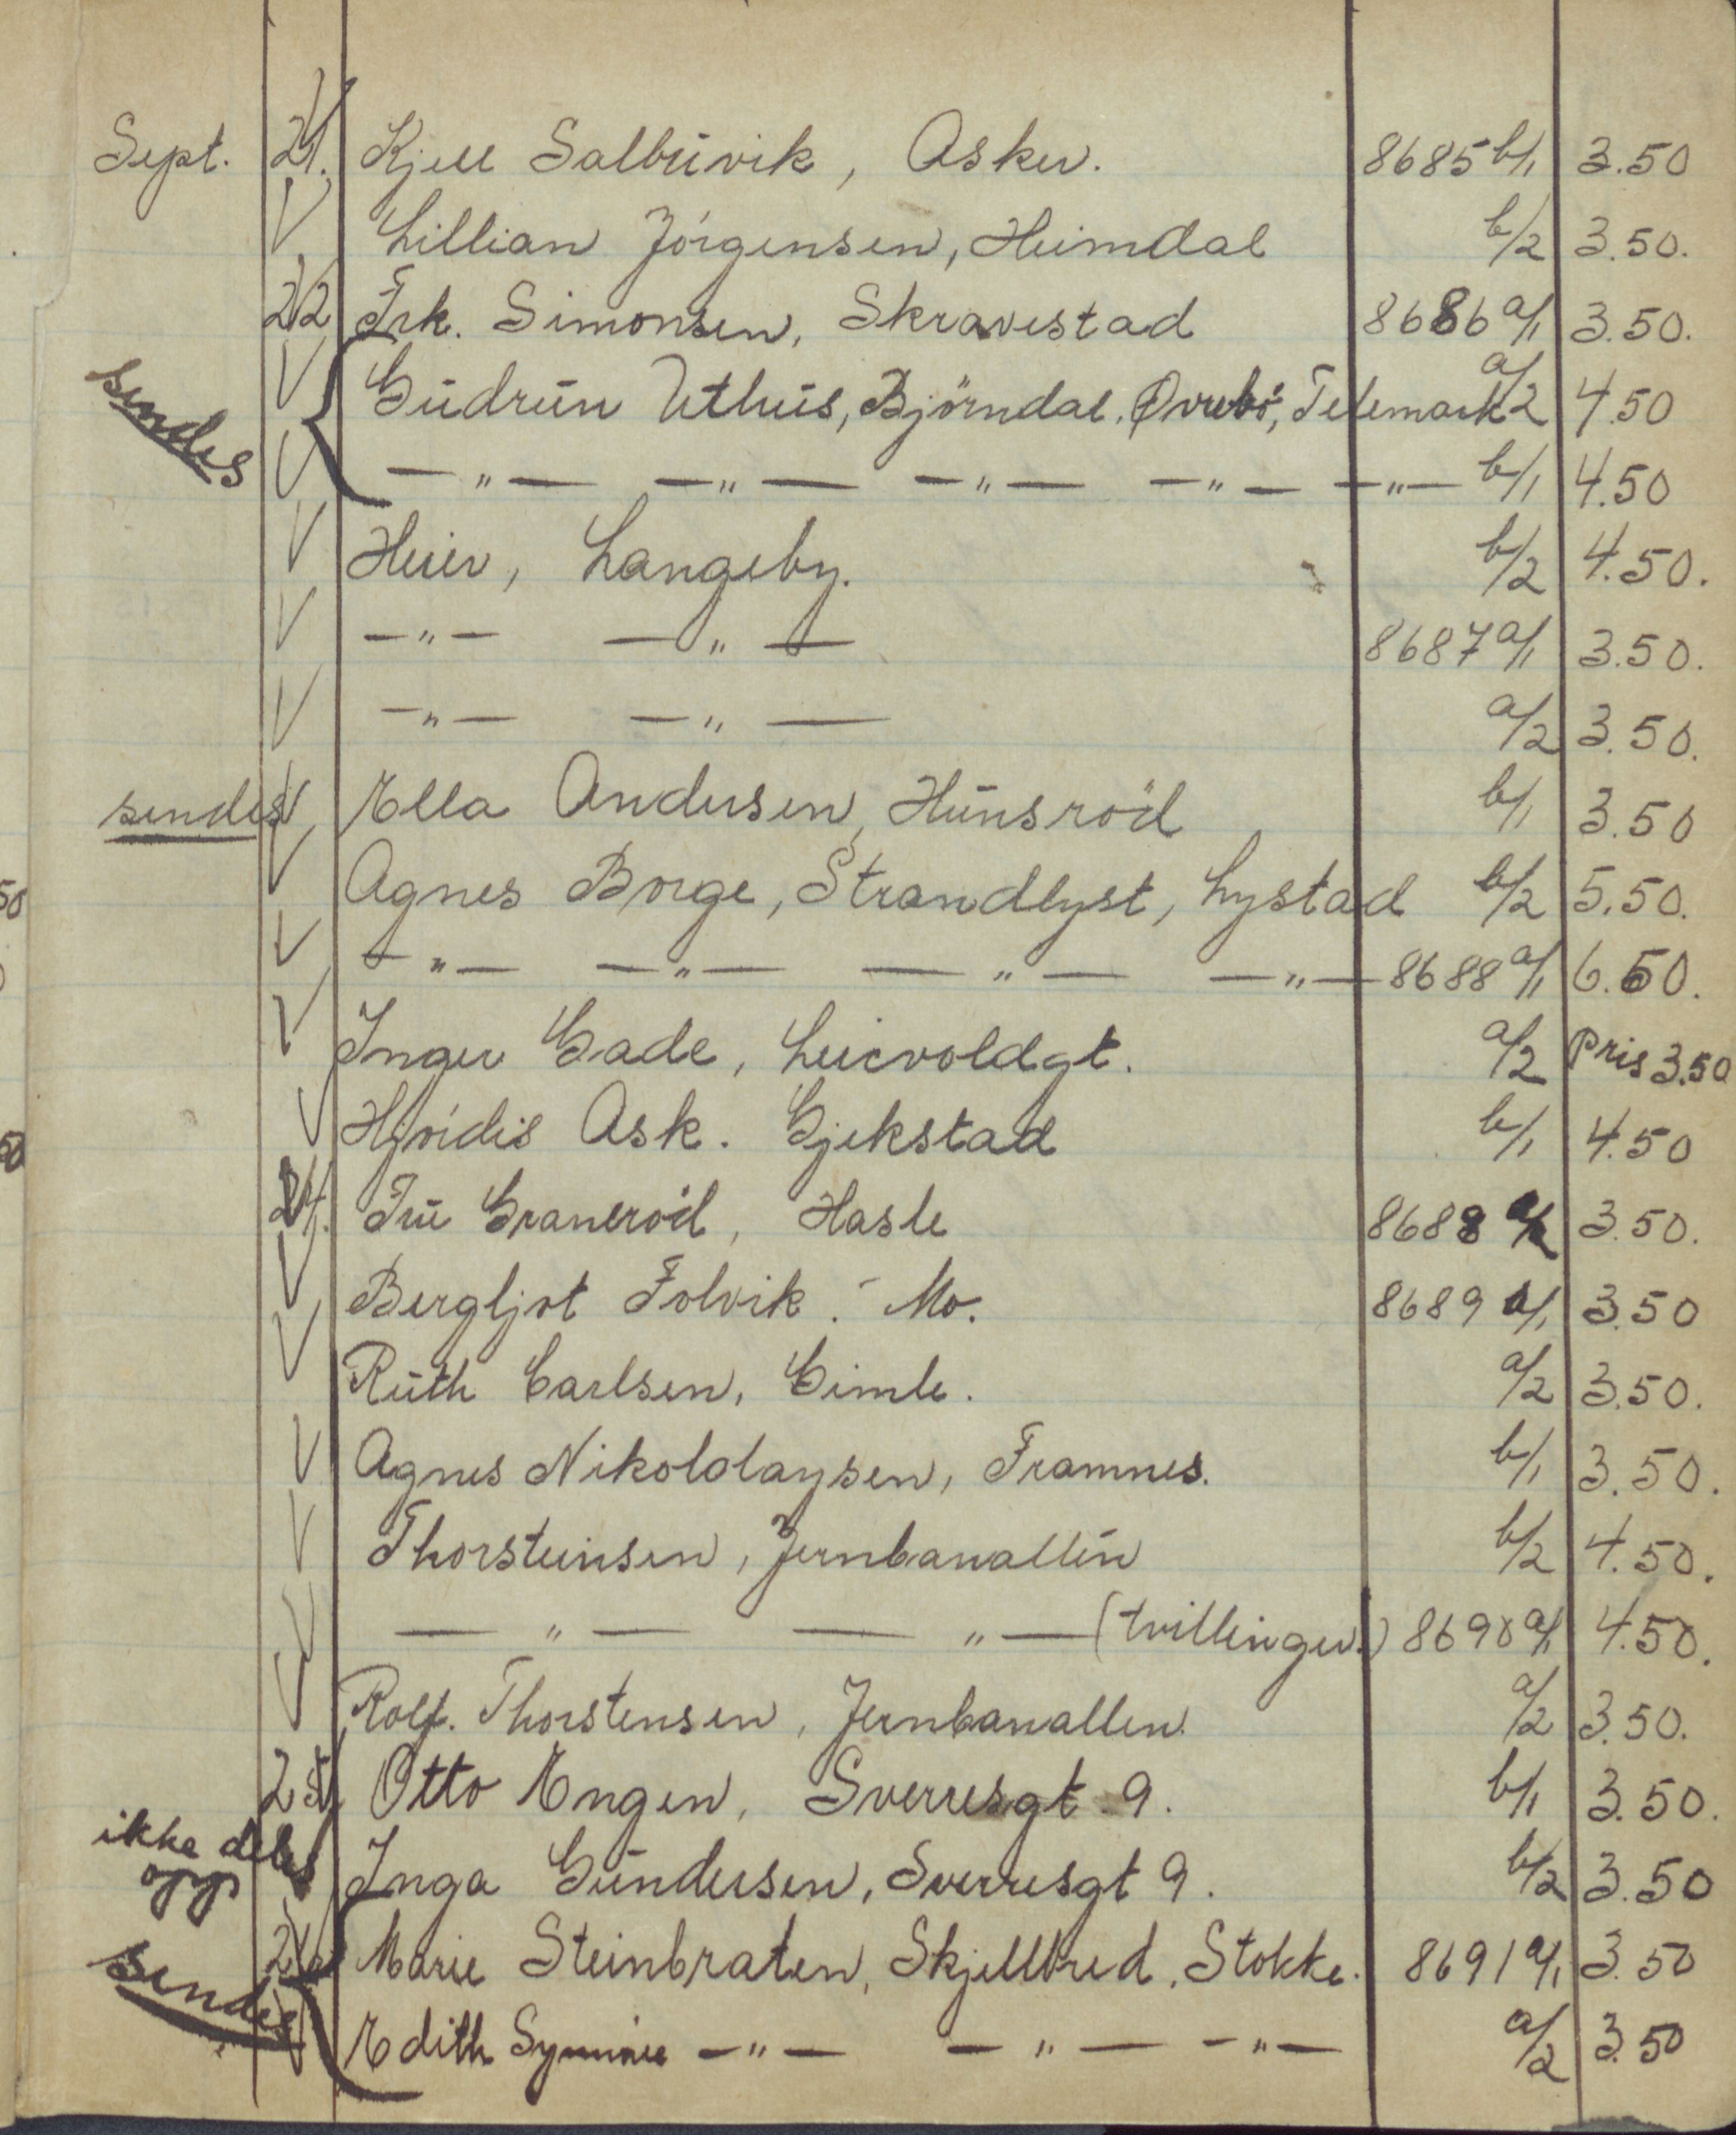 Sept. 21. Kjell Salbuvik, Asker. 8685 b/1 3.50
V Lillian Jörgensen, Heimdal b/2 3.50.
22 Frk. Simonsen, Skravestad 8686 a/1 3.50.
sendes V Gudrun Uthus, Björndal. Øvrebö, Telemark a/2 4.50
V —"— —"— —"— —"— —"— b/1 4.50
V Heier, Langeby. b/2 4.50.
V —"— —"— 8687 a/1 3.50.
V —"— —"— a/2 3.50.
sendes V Ella Andersen, Hunsröd b/1 3.50
V Agnes Borge, Strandlyst, Lystad b/2 5.50.
V —"— —"— —"— —"— 8688 a/1 6.50.
V Inger Gade, Leirvoldgt. a/2 Pris 3.50
V Hjördis Ask. Gjekstad b/1 4.50
24. Fru Graneröd, Hasle 8688 a/2 3.50.
V Bergljot Folvik. - Mo. 8689 a/1 3.50
V Ruth Carlsen, Gimle. a/2 3.50.
V Agnes Nikolalaysen, Framnes. b/1 3.50.
V Thorsteinsen, Jernbanallen b/2 4.50.
V —"— —"— (tvillinger.) 8690 a/1 4.50.
V Rolf. Thorstensen, Jernbanallen. a/2 3.50.
25 Otto Engen, Sverresgt 9. b/1 3.50.
ikke deles opp Inga Gundersen, Sverresgt 9. b/2 3.50
sendes Marie Steinbraten, Skjellbred, Stokke. 8691 a/1 3.50
V Edith —"— —"— —"— a/2 3.50